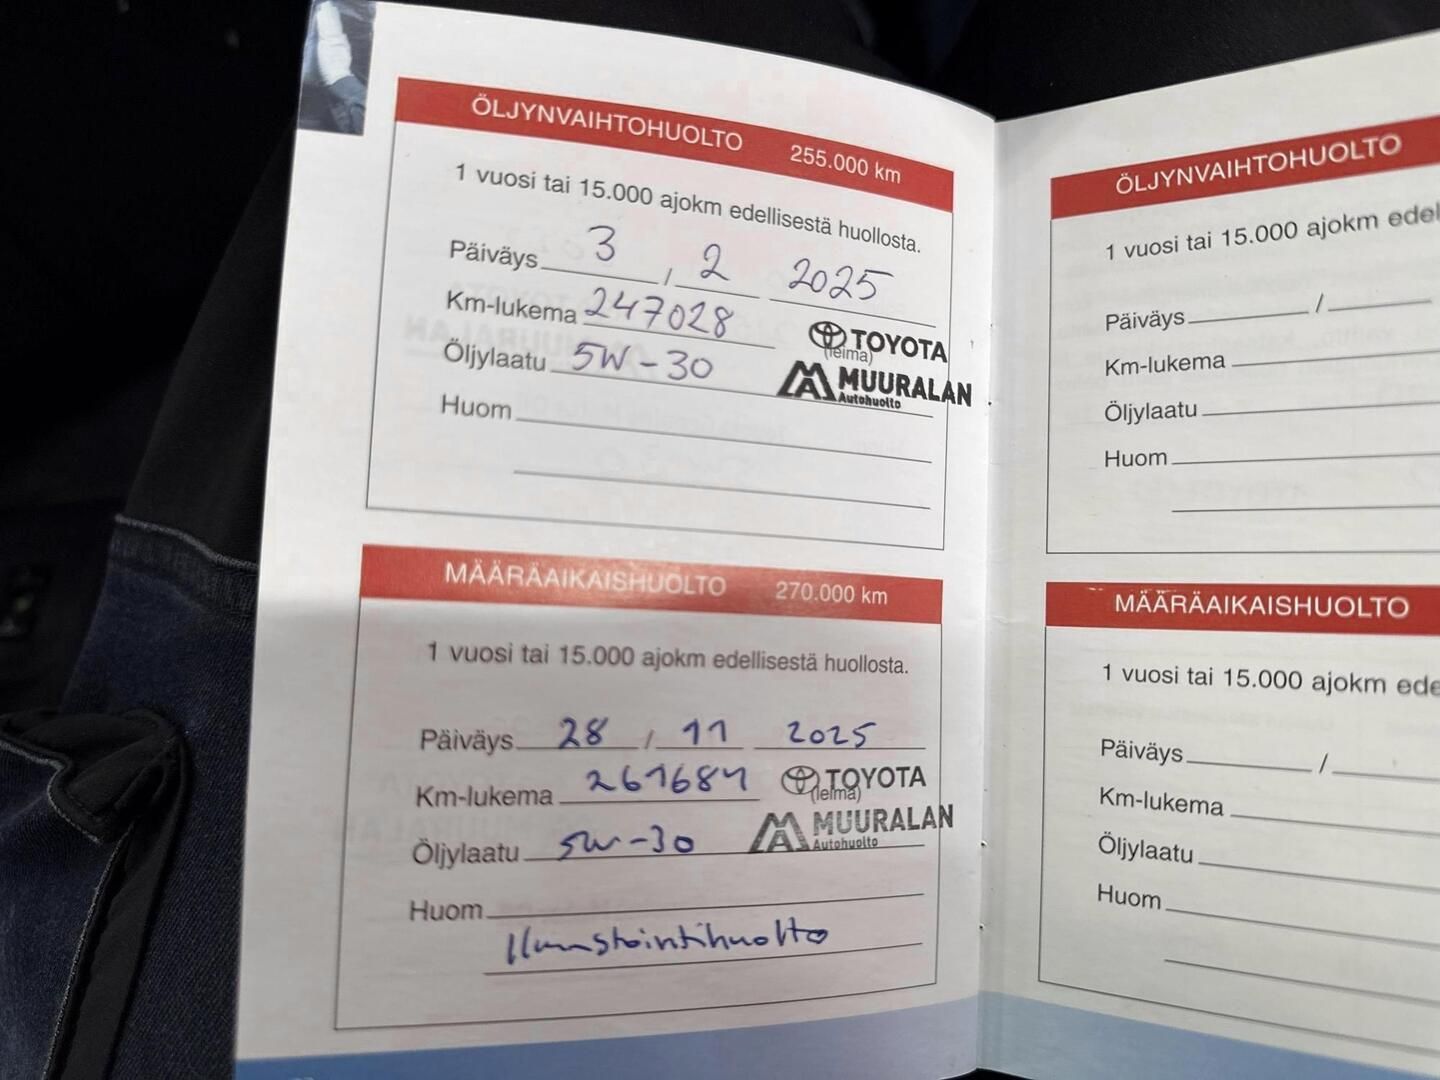 ÖLJYNVAIHTOHUOLTO 255.000 km
1 vuosi tai 15.000 ajokm edellisestä huollosta.
Päiväys 3 / 2 2025
Km-lukema 247028
Öljylaatu 5W-30
(leima)
TOYOTA
MUURALAN
Autohuolto
Huom
MÄÄRÄAIKAISHUOLTO 270.000 km
1 vuosi tai 15.000 ajokm edellisestä huollosta.
Päiväys 28 / 11 2025
Km-lukema 261684
Öljylaatu 5W-30
(leima)
TOYOTA
MUURALAN
Autohuolto
Huom
Ilmastointihuolto
ÖLJYNVAIHTOHUOLTO
1 vuosi tai 15.000 ajokm edel
Päiväys /
Km-lukema
Öljylaatu
Huom
MÄÄRÄAIKAISHUOLTO
1 vuosi tai 15.000 ajokm ede
Päiväys /
Km-lukema
Öljylaatu
Huom